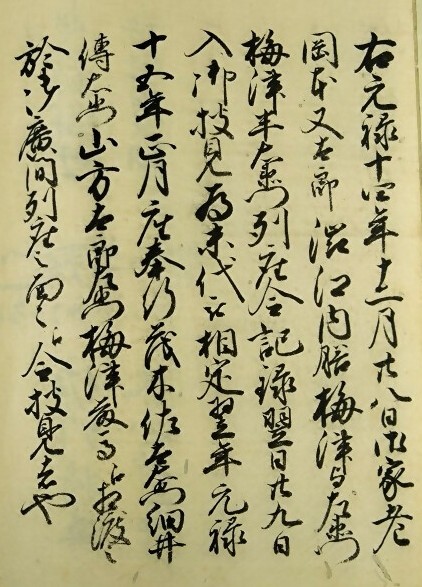 右元禄十四年十二月廿八日御家老
岡本又太郎渋江内膳梅津与左衛門
梅津半右衛門列座令記録翌日廿九日
入御披見為末代被相定翌年元禄
十五年正月座奉行茂木佐左衛門細井
傳右衛門山方太郎左衛門梅津藤馬被相渡之
於御廣間列座之面々被令披見者也